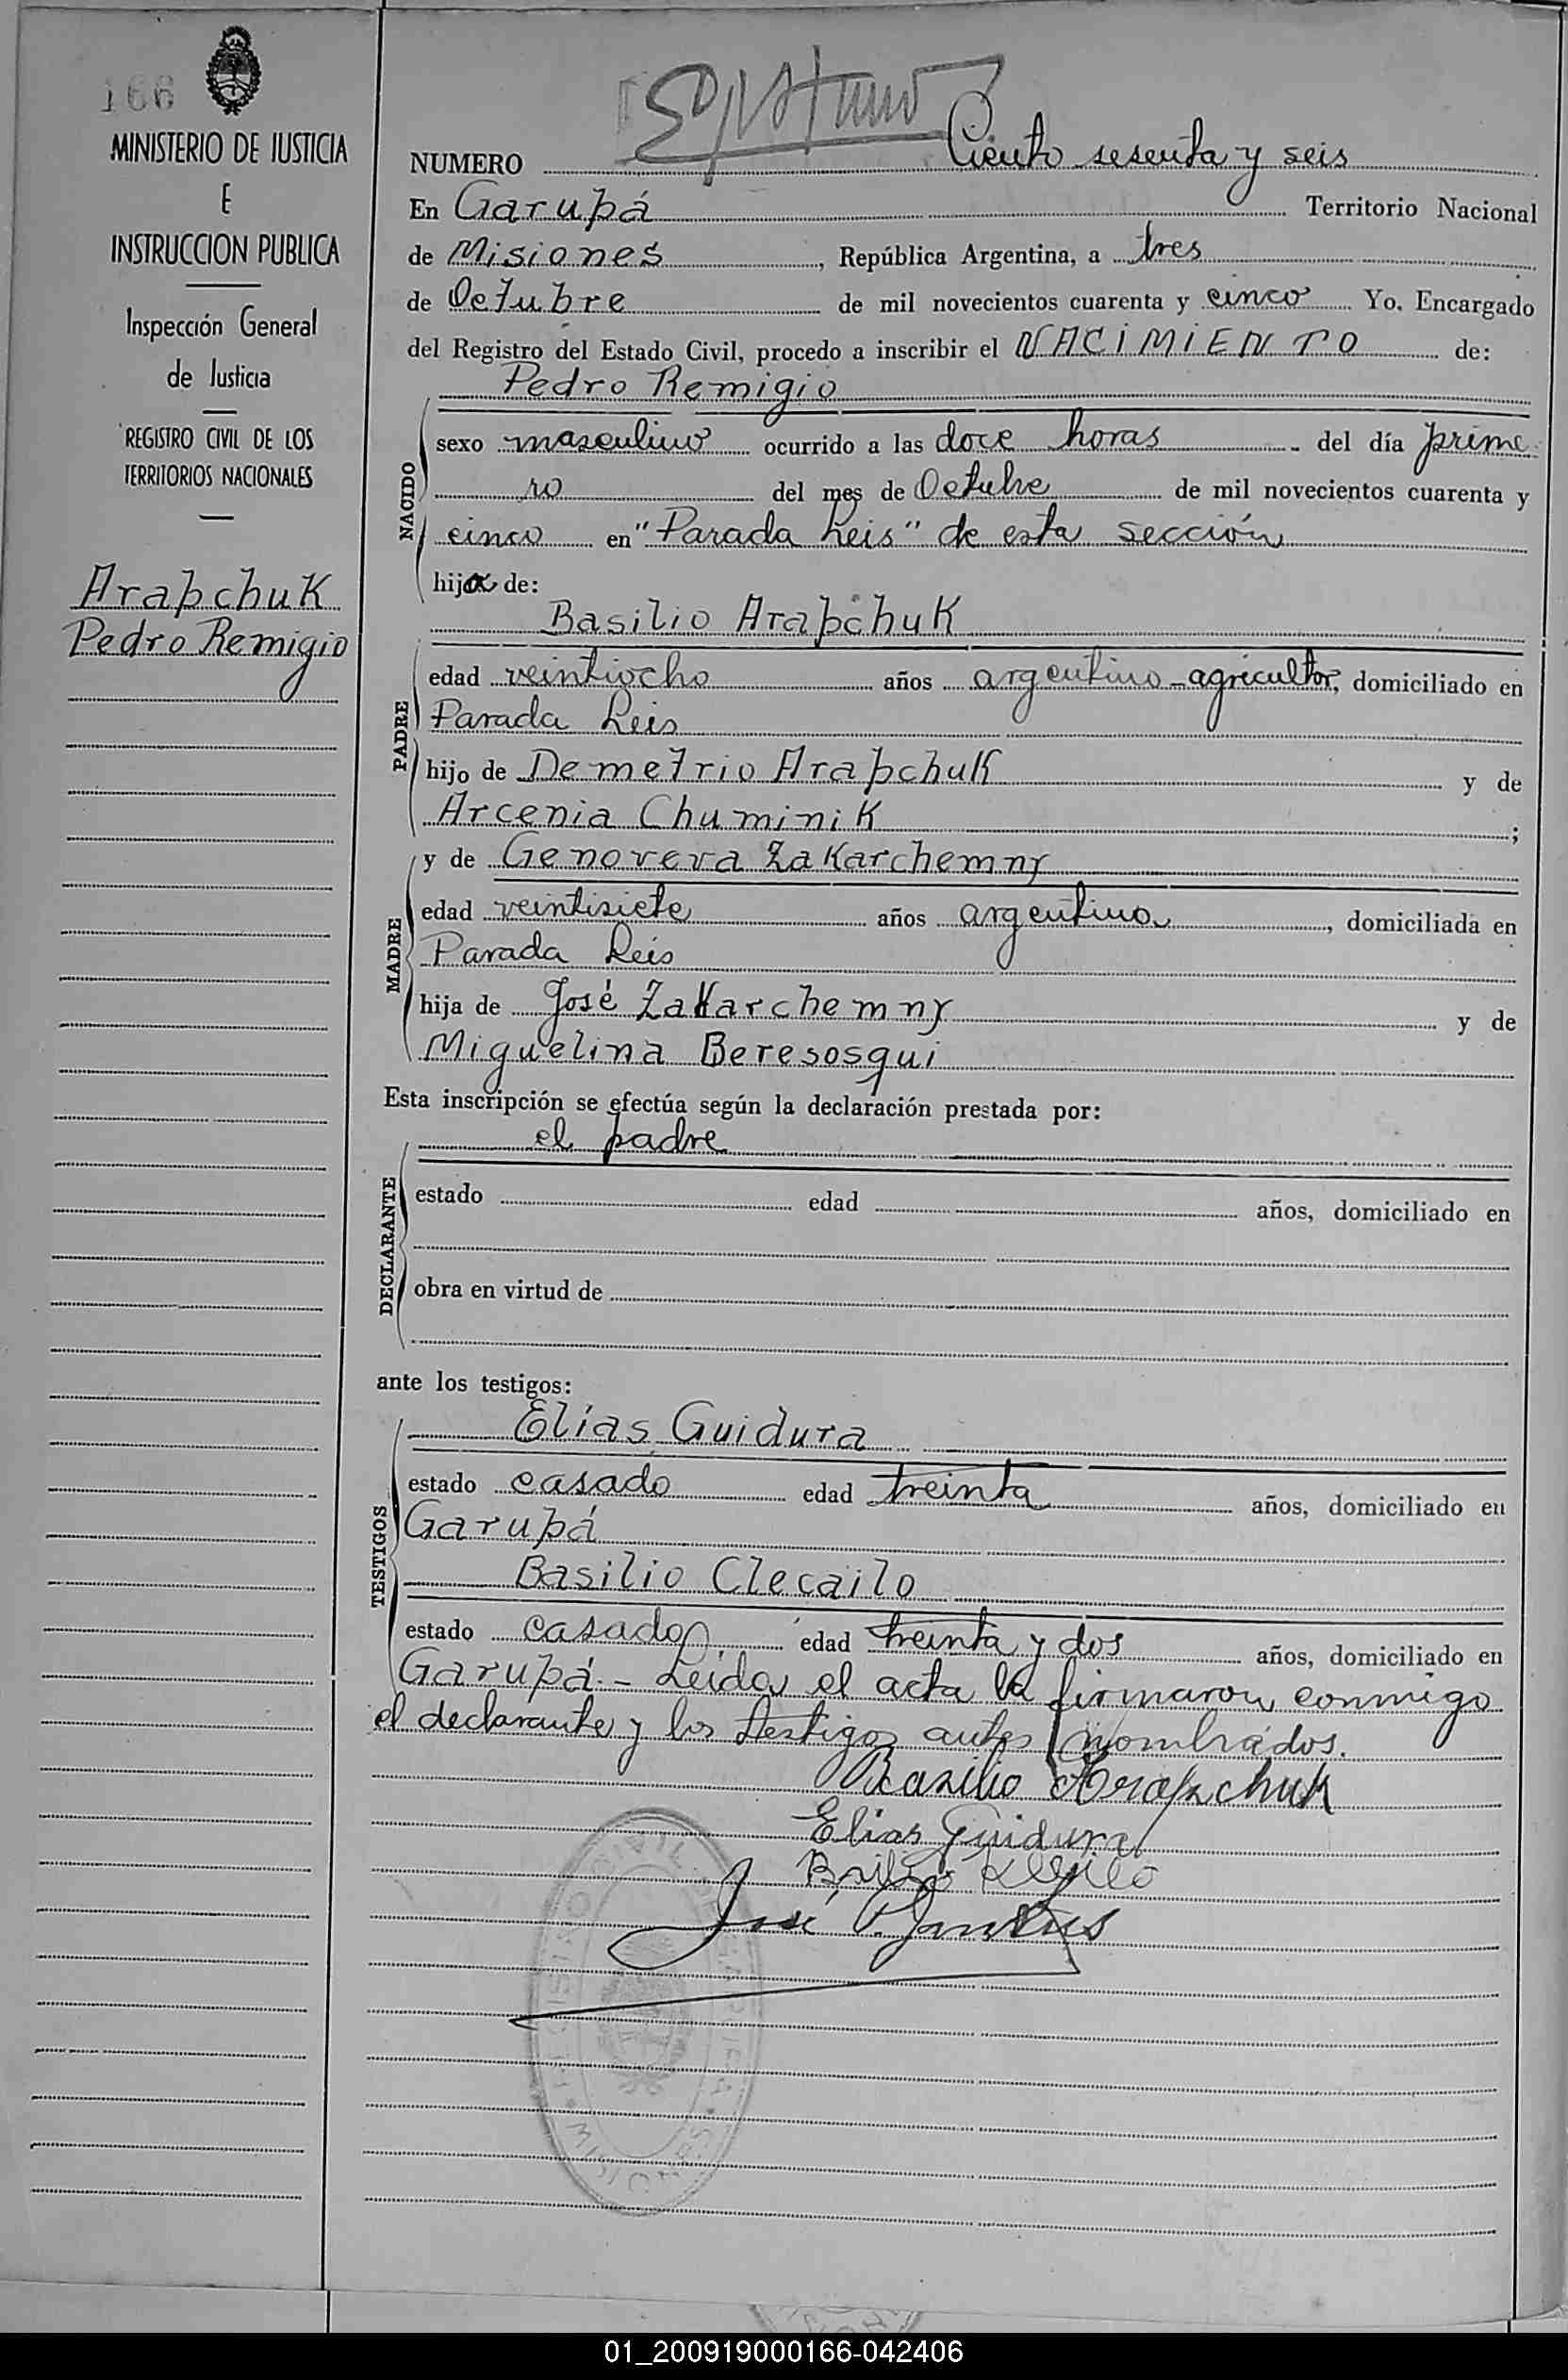 166
MINISTERIO DE JUSTICIA
E
INSTRUCCION PUBLICA
Inspección General
de Justicia
REGISTRO CIVIL DE LOS
TERRITORIOS NACIONALES
Arapchuk
Pedro Remigio
NUMERO Ciento sesenta y seis
En Garupá Territorio Nacional
de Misiones, República Argentina, a tres
de Octubre de mil novecientos cuarenta y cinco Yo, Encargado
del Registro del Estado Civil, procedo a inscribir el NACIMIENTO de:
Pedro Remigio
NACIDO
sexo masculino ocurrido a las doce horas del día prime
ro del mes de Octubre de mil novecientos cuarenta y
cinco en "Parada Leis" de esta sección
hijo de:
Basilio Arapchuk
PADRE
edad veintiocho años argentino-agricultor, domiciliado en
Parada Leis
hijo de Demetrio Arapchuk y de
Arcenia Chuminik;
y de Genoveva Zakarchemny
MADRE
edad veintisiete años argentina, domiciliada en
Parada Leis
hija de José Zakarchemny y de
Miguelina Beresosqui
Esta inscripción se efectúa según la declaración prestada por:
el padre
DECLARANTE
estado edad años, domiciliado en
obra en virtud de
ante los testigos:
TESTIGOS
Elías Guidura
estado casado edad treinta años, domiciliado en
Garupá
Basilio Clecailo
estado casado edad treinta y dos años, domiciliado en
Garupá.- Leída el acta la firmaron conmigo
el declarante y los testigos antes nombrados.
Basilio Arapchuk
Elias Guidura
José
01_200919000166-042406